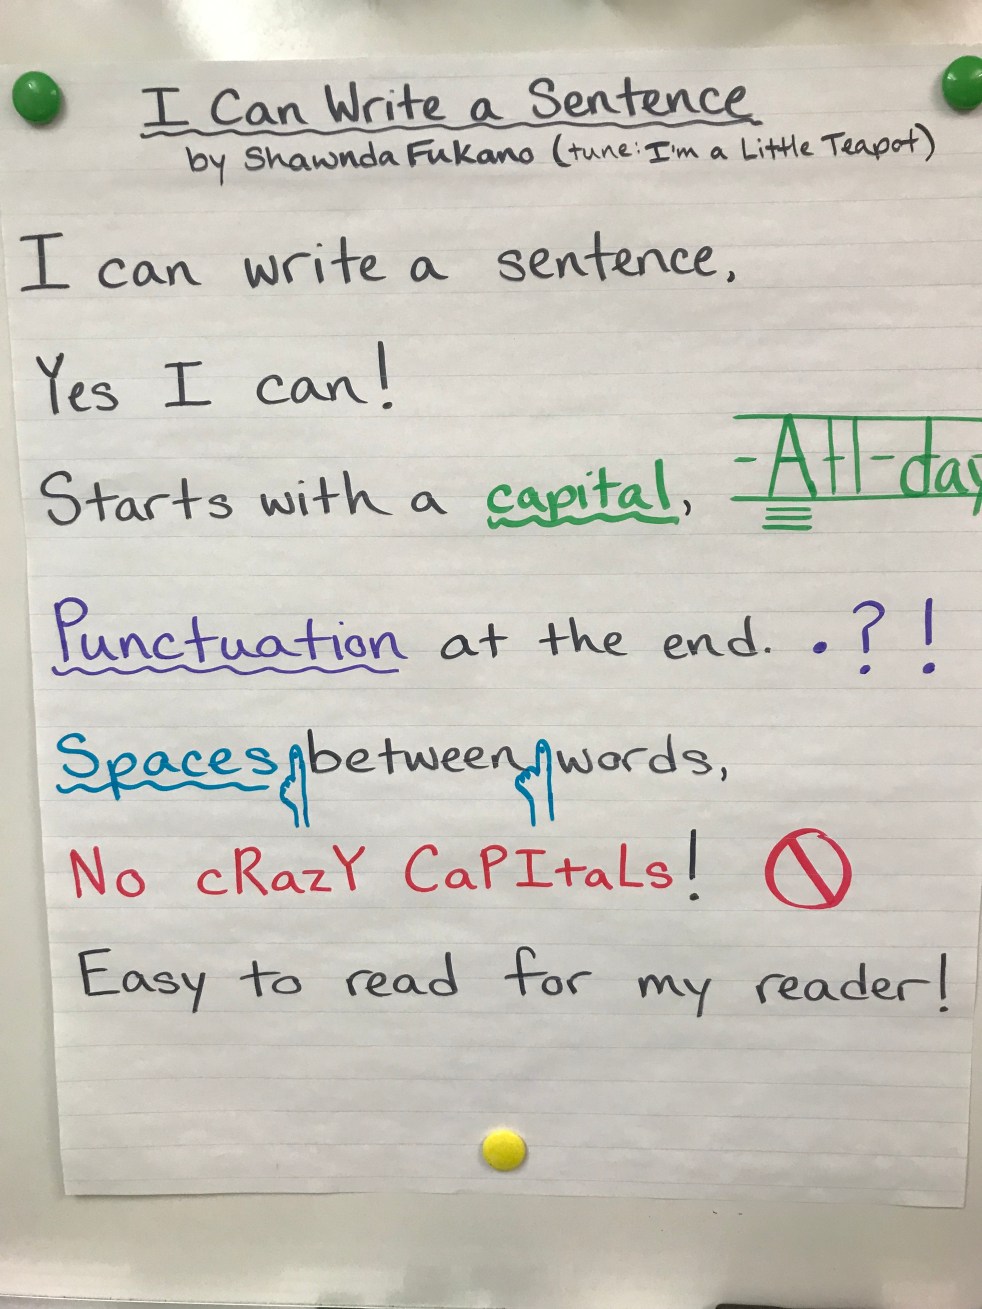 I Can Write a Sentence
by Shawnda Fukano (tune: I'm a Little Teapot)
I can write a sentence,
Yes I can!
Starts with a capital, -All-day
Punctuation at the end. . ? !
Spaces between words,
No cRazY CaPItaLs!
Easy to read for my reader!